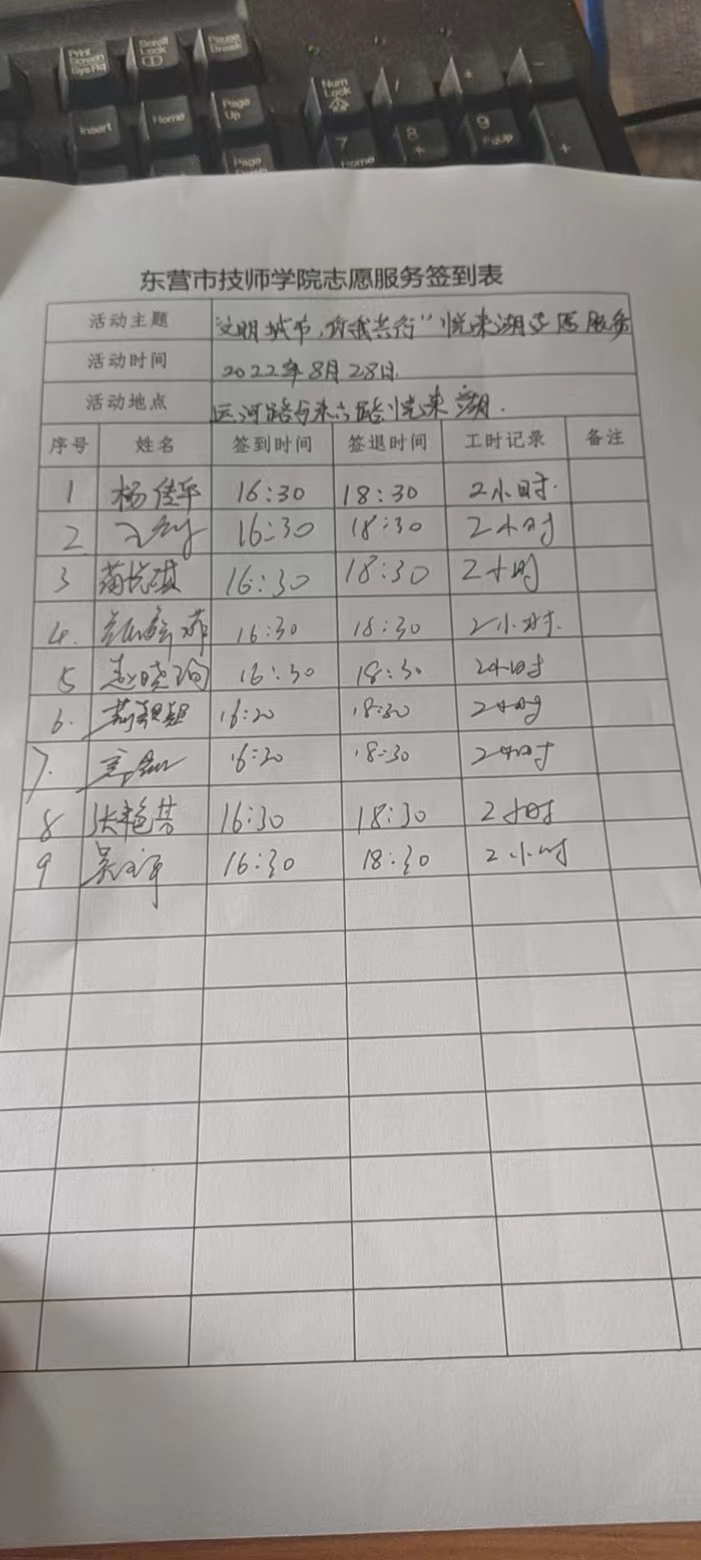 Print Screen SysRq
Scroll Lock
Pause Break
Insert
Home
Page Up
Num Lock
/
*
-
7 Home
8
9 PgUp
+
东营市技师学院志愿服务签到表
活动主题 "文明城市,你我共行"悦来湖志愿服务
活动时间 2022年8月28日.
活动地点 运河路与来六路悦来湖.
序号 姓名 签到时间 签退时间 工时记录 备注
1 杨佳平 16:30 18:30 2小时.
2 16:30 18:30 2小时
3 16:30 18:30 2小时
4. 16:30 18:30 2小时.
5 赵晓洵 16:30 18:30 2小时
6. 16:30 18:30 2小时
7. 16:30 18:30 2小时
8 张艳芸 16:30 18:30 2小时
9 16:30 18:30 2小时